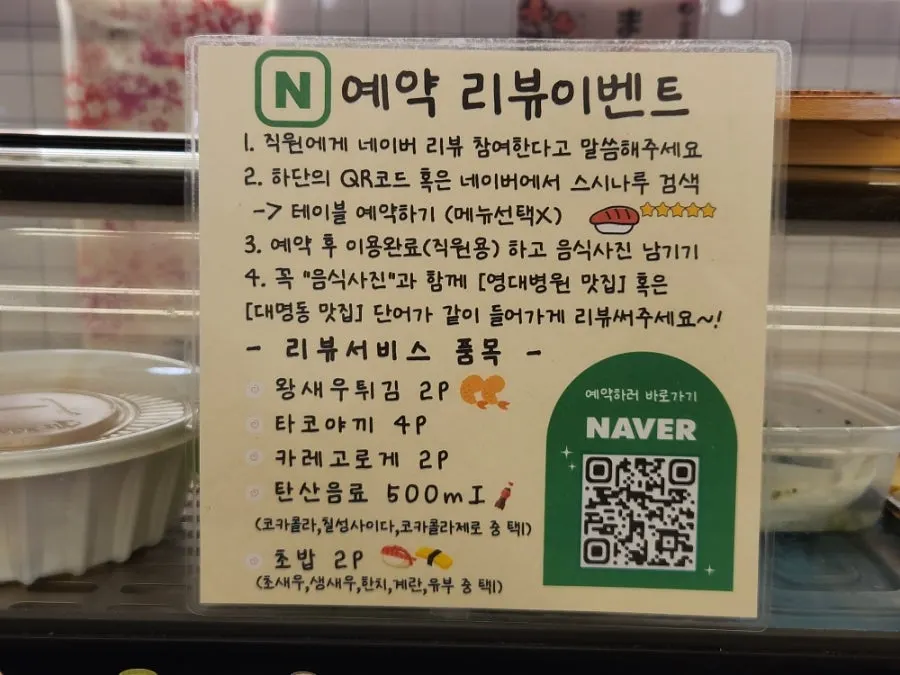 ま
N 예약 리뷰이벤트
1. 직원에게 네이버 리뷰 참여한다고 말씀해주세요
2. 하단의 QR코드 혹은 네이버에서 스시나루 검색
-> 테이블 예약하기 (메뉴선택X)
3. 예약 후 이용완료(직원용) 하고 음식사진 남기기
4. 꼭 "음식사진"과 함께 [영대병원 맛집] 혹은
[대명동 맛집] 단어가 같이 들어가게 리뷰써주세요~!
- 리뷰서비스 품목 -
왕새우튀김 2P
타코야끼 4P
카레고로게 2P
탄산음료 500mI
(코카콜라,칠성사이다,코카콜라제로 중 택1)
초밥 2P
(초새우,생새우,한치,계란,유부 중 택1)
예약하러 바로가기
NAVER